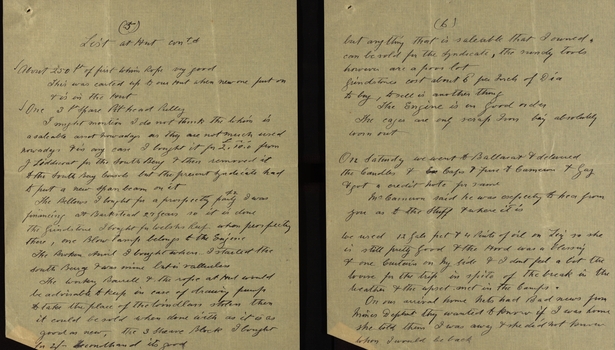 (5)
List at Hut cont'd
About 250 ft of first Whim Rope very good
This was carted up to our Hut when new one put on
& is in the Hut
One 3 ft Spare Pit head Pulley
I might mention I do not think the Whim is
saleable much nowadays as they are not much used
nowadays & in any case I bought it for £2.10.0 from
J for the South Berry & then removed it
to the South Berry but the present Syndicate had
to put a new spanbeam on it
The Bellows I bought for a prospecting party I was
financing at 27 years ago so it is done
The Grindstone I bought for when prospecting
there, one Blow lamp belongs to the Engine
The Broken Anvil I bought when I started the
South Berry & was mine but is valueless
The Barrell & the rope at Hut would
be advisable to keep in case of drawing pumps
& take the place of the windlass then
it could be sold when done with as it is as
good as new, The 3 Sheave Block I bought
for 2/- Secondhand its good
(6)
but anything that is saleable that I owned
can be sold for the Syndicate, the sundry tools
however are a poor lot
Grindstones cost about 6d per Inch of Dia
to buy, to sell is another thing
The Engine is in good order
The cages are only scrap Iron being absolutely
worn out
On Saturday we went to Ballarat & delivered
the Candles & Caps & fuse to Cameron &
& got a credit note for same
Mr Cameron said he was expecting to hear from
you as to the Stuff & where it is
We used 12 Gals pet & 4 Pints of oil on Trip so she
is still pretty good & the Hood was a blessing
& one Curtain on my side & I dont feel a bit the
worse for the trip in spite of the break in the
weather & the upset in the Camps.
On our arrival home Mrs had Bad news from
Mines Depmt they wanted to know if I was home
she told them I was away & she did not know
when I would be back